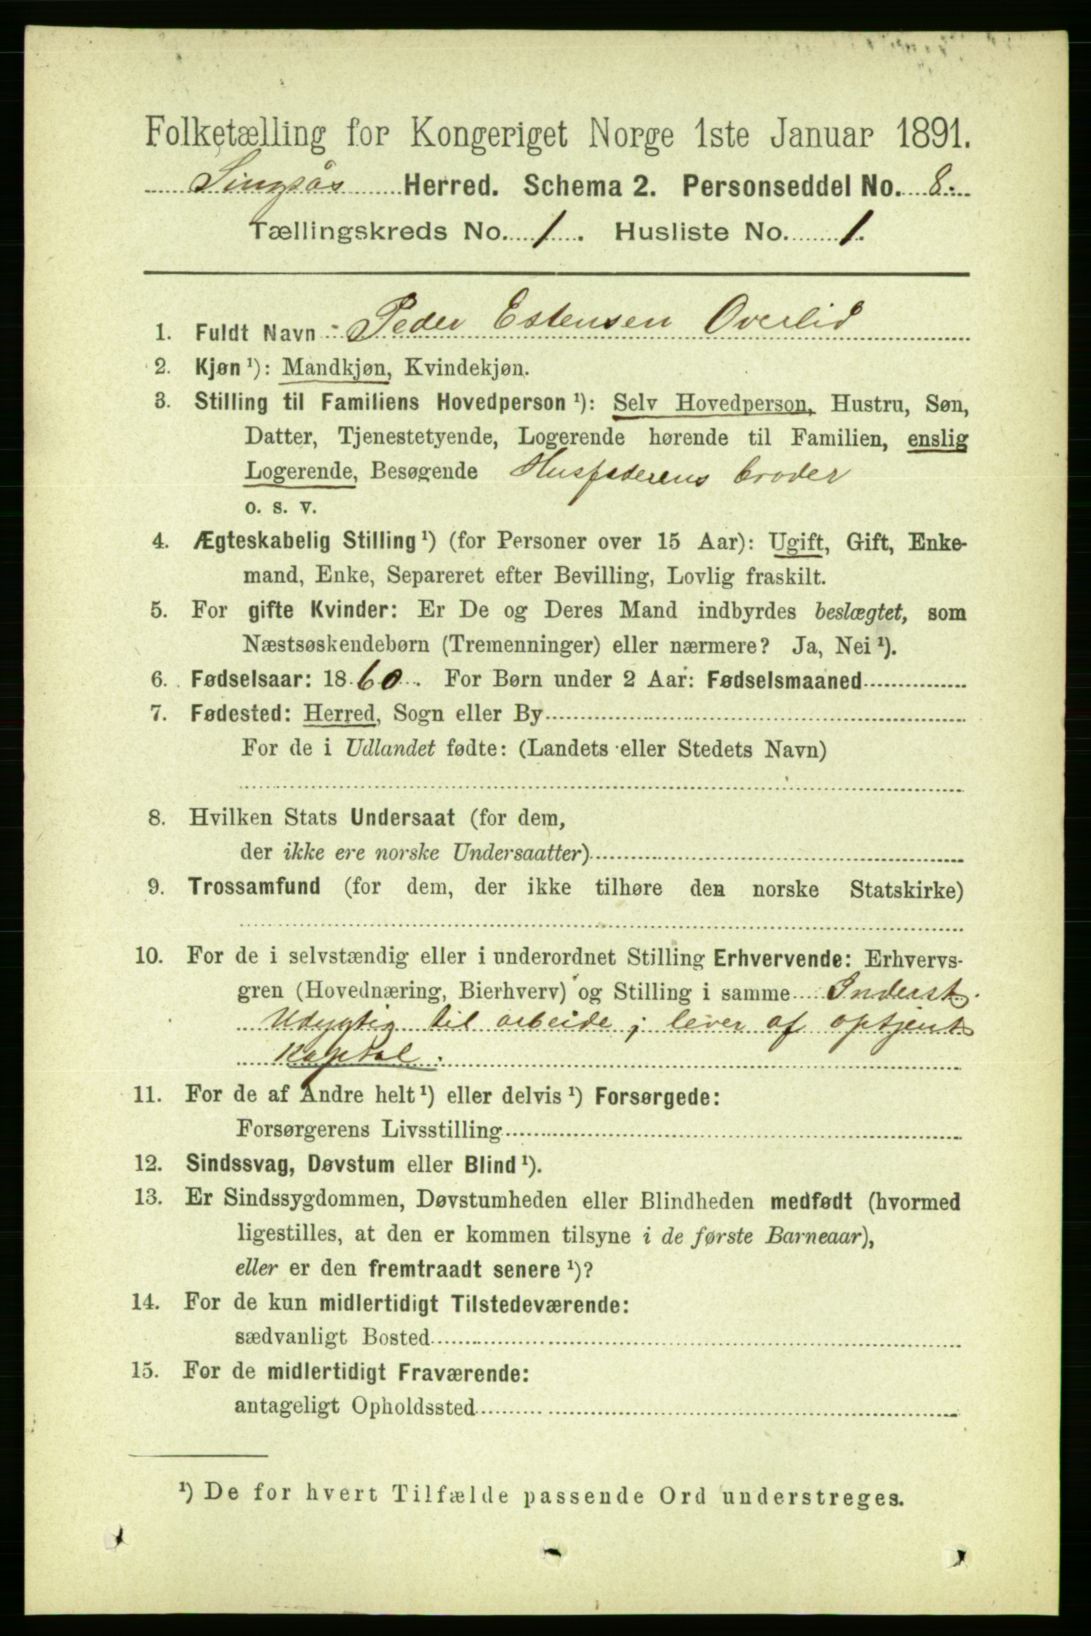 Folketælling for Kongeriget Norge 1ste Januar 1891.
Singsås Herred. Schema 2. Personseddel No. 8.
Tællingskreds No. 1. Husliste No. 1.
1. Fuldt Navn Peder Estensen Overlid
2. Kjøn ¹): Mandkjøn, Kvindekjøn.
3. Stilling til Familiens Hovedperson ¹): Selv Hovedperson, Hustru, Søn,
Datter, Tjenestetyende, Logerende hørende til Familien, enslig
Logerende, Besøgende Husfaderens broder
o. s. v.
4. Ægteskabelig Stilling ¹) (for Personer over 15 Aar): Ugift, Gift, Enke-
mand, Enke, Separeret efter Bevilling, Lovlig fraskilt.
5. For gifte Kvinder: Er De og Deres Mand indbyrdes beslægtet, som
Næstsøskendebørn (Tremenninger) eller nærmere? Ja, Nei ¹).
6. Fødselsaar: 1860. For Børn under 2 Aar: Fødselsmaaned
7. Fødested: Herred, Sogn eller By
For de i Udlandet fødte: (Landets eller Stedets Navn)
8. Hvilken Stats Undersaat (for dem,
der ikke ere norske Undersaatter)
9. Trossamfund (for dem, der ikke tilhøre den norske Statskirke)
10. For de i selvstændig eller i underordnet Stilling Erhvervende: Erhvervs-
gren (Hovednæring, Bierhverv) og Stilling i samme Inderst.
Udygtig til arbeide; lever af optjent
Kapital.
11. For de af Andre helt ¹) eller delvis ¹) Forsørgede:
Forsørgerens Livsstilling
12. Sindssvag, Døvstum eller Blind ¹).
13. Er Sindssygdommen, Døvstumheden eller Blindheden medfødt (hvormed
ligestilles, at den er kommen tilsyne i de første Barneaar),
eller er den fremtraadt senere ¹)?
14. For de kun midlertidigt Tilstedeværende:
sædvanligt Bosted
15. For de midlertidigt Fraværende:
antageligt Opholdssted
¹) De for hvert Tilfælde passende Ord understreges.